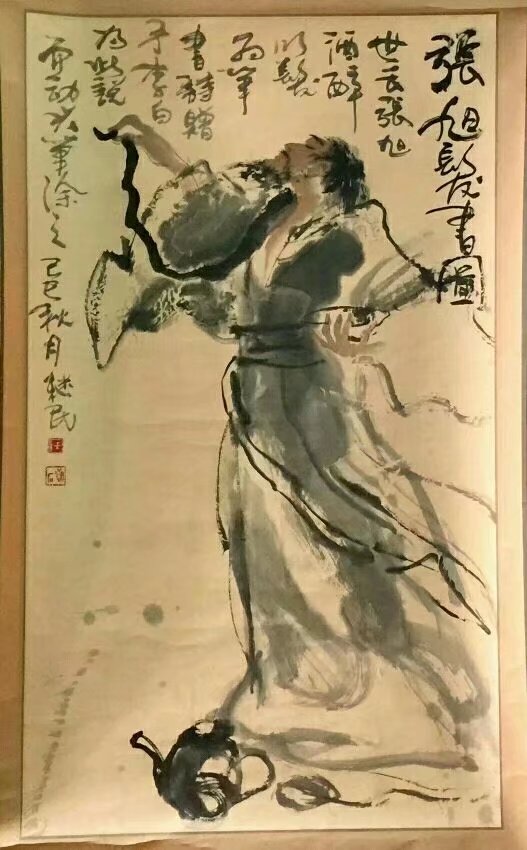 張旭髮書圖
世云張旭
酒醉
以髮
為筆
書詩贈
予李白
為此說
而動大筆涂之己巳秋月継民